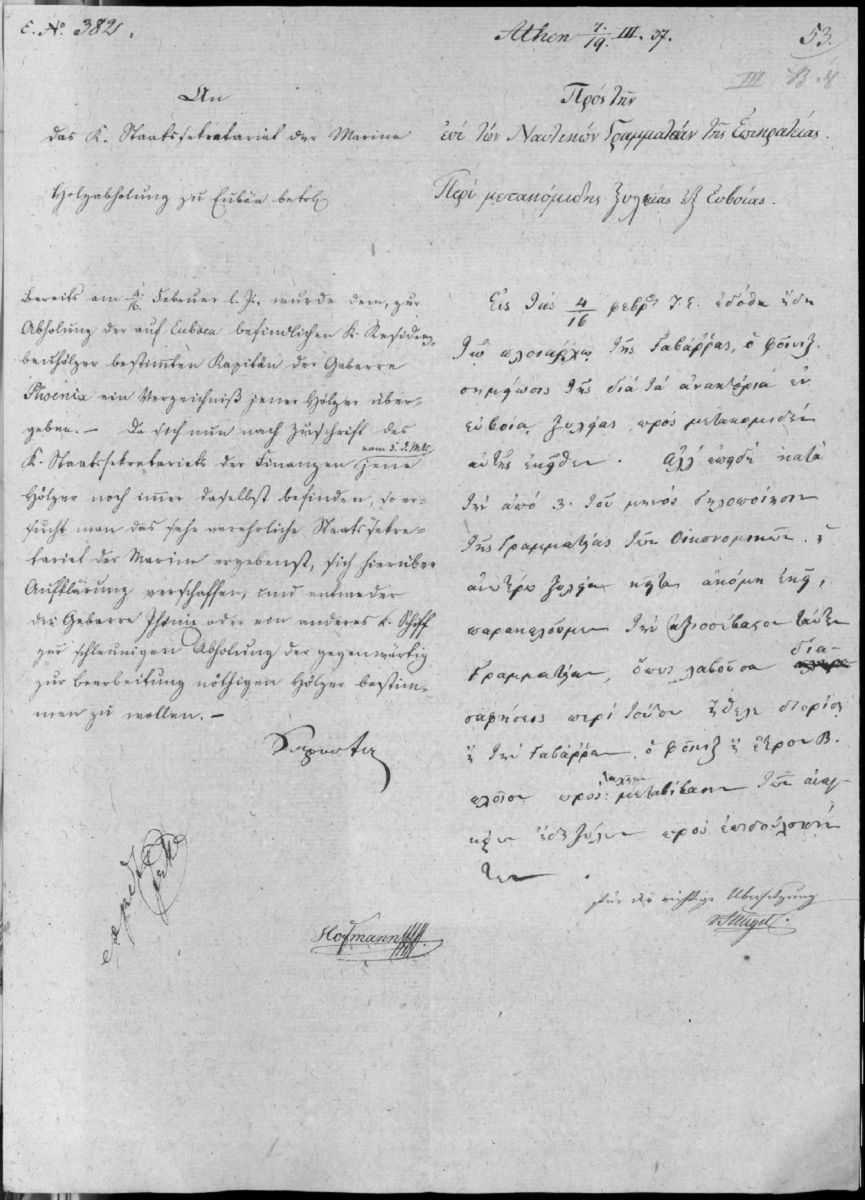 E. No. 382.
Athen 7./19. III. 37.
53.
III B. 4
An
das K. Staatssekretariat der Marine
Holzabholung zu Euböa betr.
Bereits am 4/16. Februar l. Js. wurde dem, zur
Abholung der auf Euboea befindlichen K. Residenz-
bauhölzer bestimten Kapitän der Gabarre
Phoenix ein Verzeichniß jener Hölzer über-
geben. – Da sich nun nach Zuschrift des
K. Staatssekretariats der Finanzen vom 3. d. Mts. jene
Hölzer noch immer daselbst befinden, so er-
sucht man das sehr verehrliche Staatssekre-
tariat der Marine ergebenst, sich hierüber
Aufklärung verschaffen, und entweder
die Gabarre Phönix oder ein anderes k. Schiff
zur schleunigen Abholung der gegenwärtig
zur Bearbeitung nöthigen Hölzer bestim-
men zu wollen. –
Hofmann
Πρὸς τὴν
ἐπὶ τῶν Ναυτικῶν Γραμματείαν τῆς Ἐπικρατείας.
Περὶ μετακομίδης ξυλείας ἐξ Ευβοίας.
Εἰς τὰς 4/16 φεβρ. τ. ἔ. ἐδόθη ἤδη
τῷ πλοιάρχῳ τῆς Γαβάρρας, ὁ Φοῖνιξ
σημείωσις τῆς διὰ τὰ ἀνακτόρια ἐν
εὐβοίᾳ ξυλείας πρὸς μετακομιδὴν
αὐτῆς ἐκεῖθεν. Ἀλλ' ἐπειδὴ κατὰ
τὴν ἀπὸ 3. τοῦ μηνὸς δηλοποίησιν
τῆς Γραμματείας τῶν Οἰκονομικῶν ἡ
ἀνωτέρω ξυλεία κεῖται ἀκόμη ἐκεῖ,
παρακαλοῦμεν τὴν ἀξιοσέβαστον ταύτην
Γραμματείαν, ὅπως λαβοῦσα δια-
σαφήσεις περὶ τούτου ἤθελε διορίσει
ἢ τὴν Γαβάρραν ὁ Φοῖνιξ ἢ ἕτερον Β.
πλοῖον πρὸς ταχεῖαν μετάβασιν τῶν ἀναγ-
καίων ἤδη ξύλων πρὸς
των.
für die richtige Übersetzung